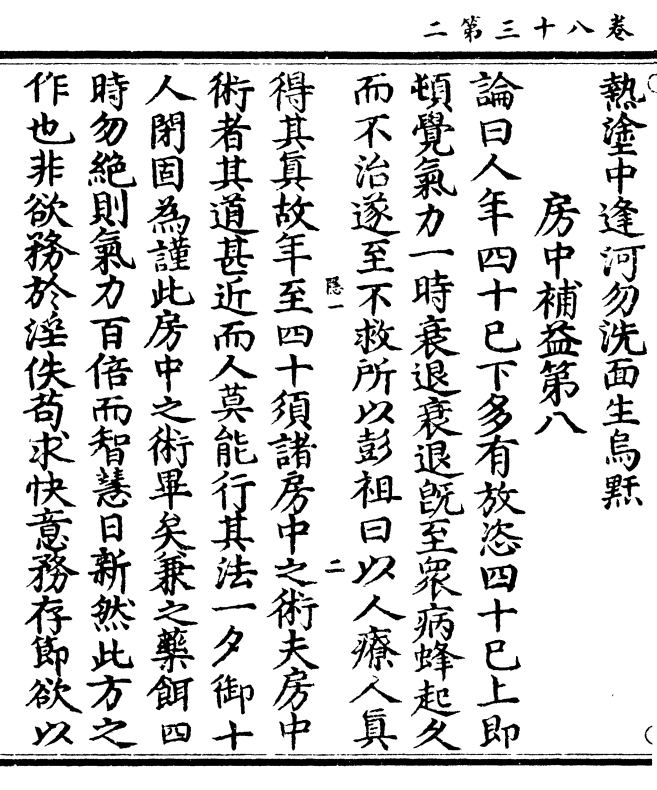 卷八十三第二
熱塗中逢河勿洗面生烏𪒟
房中補益第八
論曰人年四十已下多有放恣四十已上即
頓覺氣力一時衰退衰退旣至衆病蜂起久
而不治遂至不救所以彭祖曰以人療人眞
隱一
二
得其眞故年至四十須諸房中之術夫房中
術者其道甚近而人莫能行其法一夕御十
人閉固為謹此房中之術畢矣兼之藥餌四
時勿絶則氣力百倍而智慧日新然此方之
作也非欲務於淫佚苟求快意務存節欲以